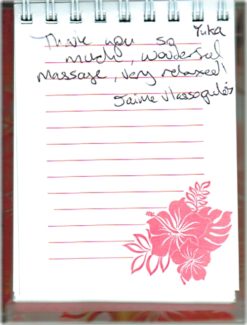 Yuka
Thank you so
much, wonderful
massage, very relaxed!
Jaime